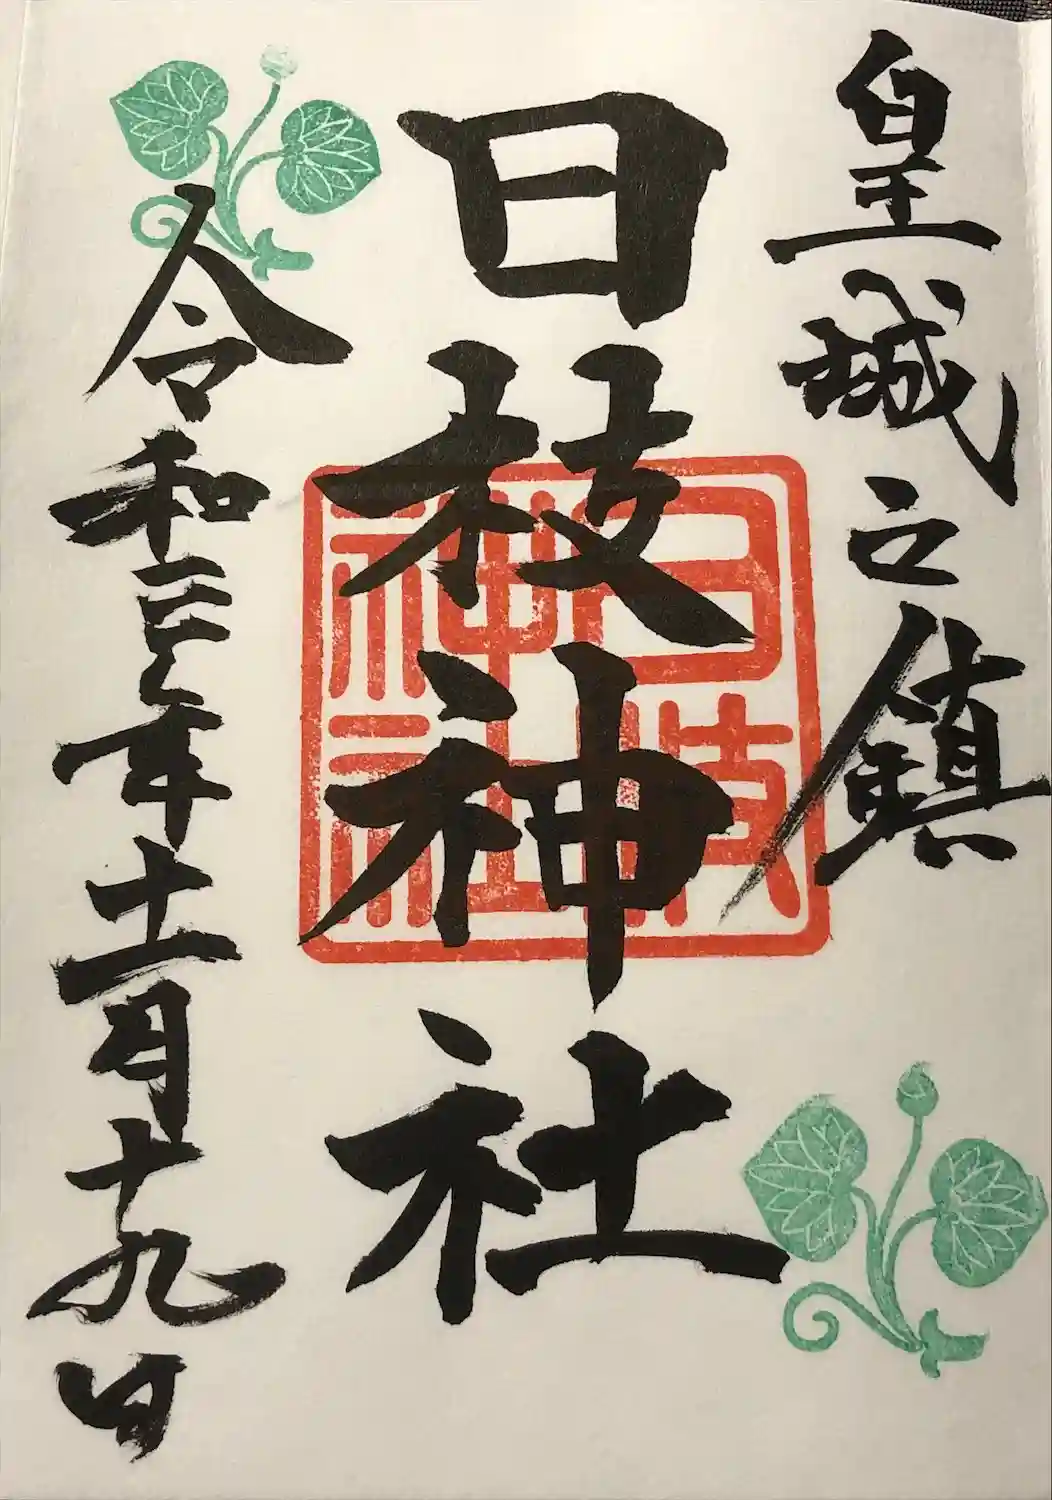 皇城之鎮
日枝神社
令和三年十一月十九日
日枝
神社